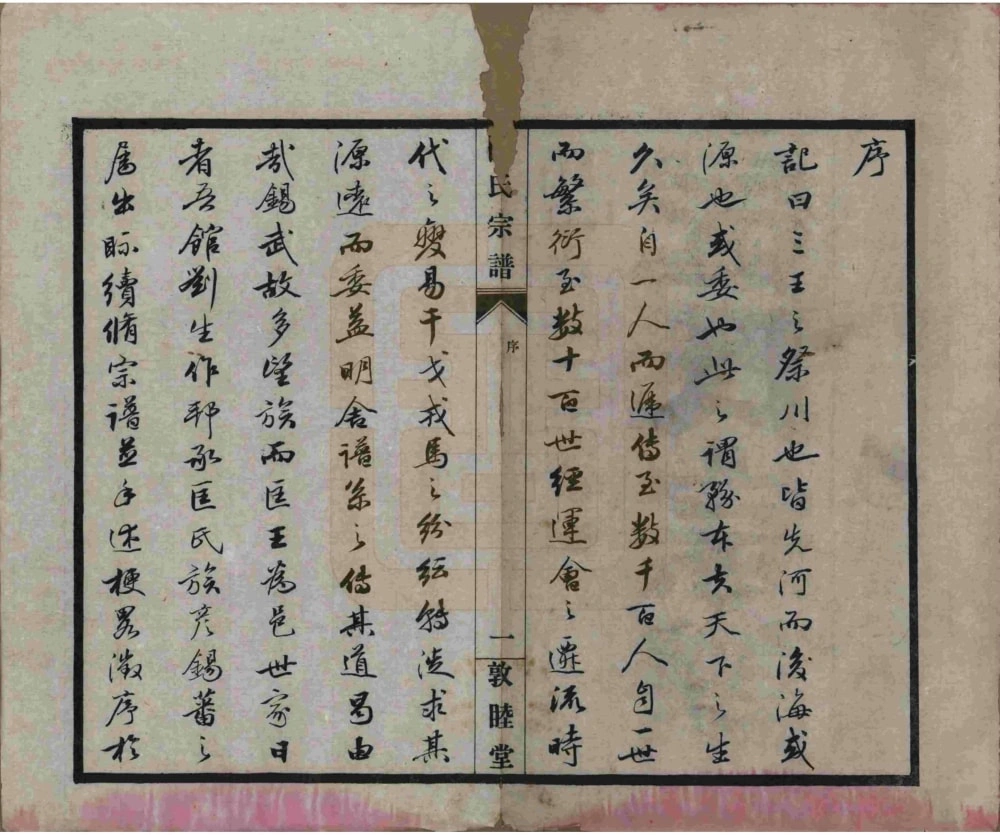 序
記曰三王之祭川也皆先河而後海或
源也或委也此之謂務本夫天下之生
久矣自一人而遞傳至數千百人自一世
而繁衍至數十百世經運會之遷流時
氏宗譜
序
一
敦睦堂
代之變易干戈戎馬之紛紜轉徙求其
源遠而委益明舍譜系之傳其道曷由
哉錫武故多望族而匡王為邑世家日
者吾館劉生作邦承匡氏族彥錫蕃之
屬出眎續脩宗譜並手述梗畧徵序於